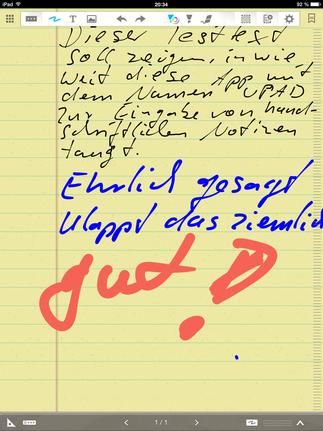 iPad
20:34
92 %
Dieser Testtext
soll zeigen, in wie
weit diese App mit
dem Namen UPAD
zur Eingabe von hand-
schriftlichen Notizen
taugt.
Ehrlich gesagt
klappt das ziemlich
gut!
1 / 1